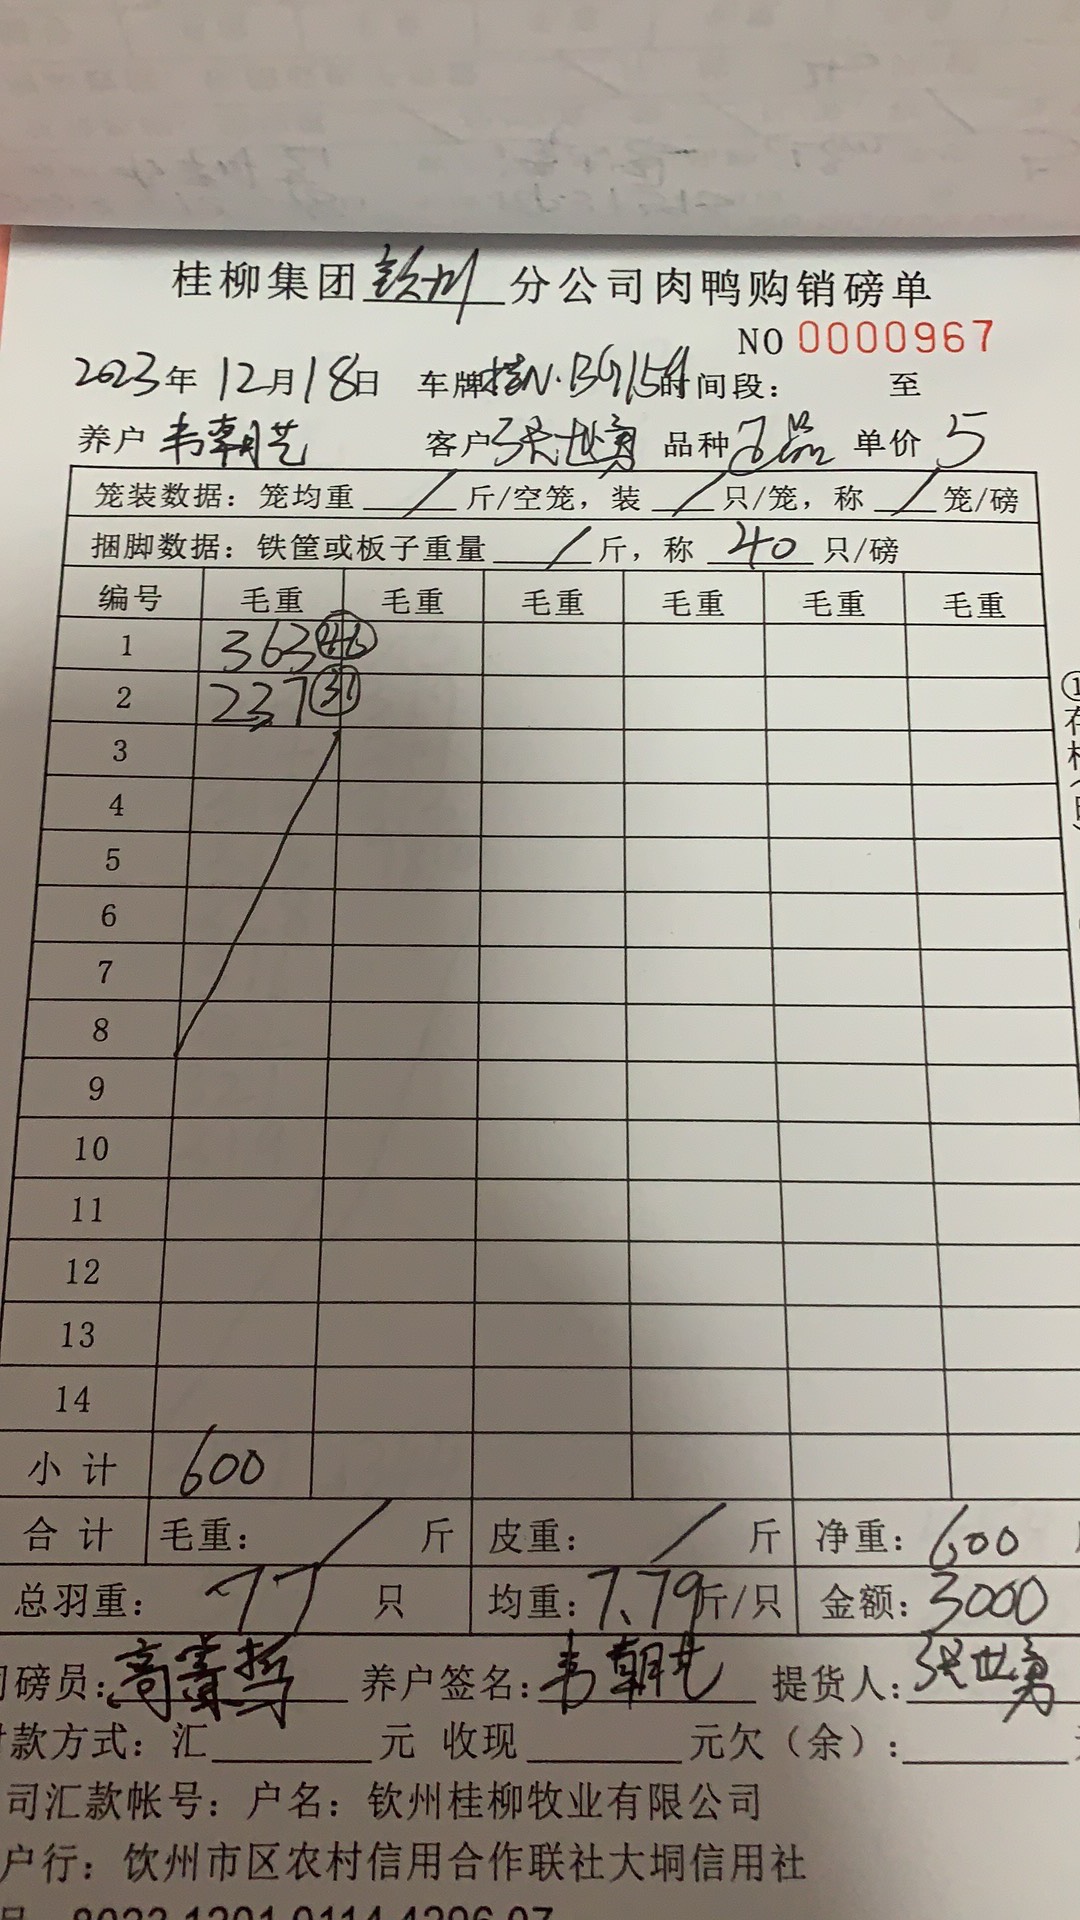 桂柳集团 钦州 分公司肉鸭购销磅单
NO 0000967
2023年 12月18日 车牌桂N·BG159 时间段： 至
养户 韦朝艺 客户 张世勇 品种 石品 单价 5
笼装数据：笼均重 / 斤/空笼，装 / 只/笼，称 / 笼/磅
捆脚数据：铁筐或板子重量 / 斤，称 40 只/磅
编号 毛重 毛重 毛重 毛重 毛重 毛重
1 363 46
2 237 31
3
4
5
6
7
8
9
10
11
12
13
14
小计 600
合计 毛重： / 斤 皮重： / 斤 净重：600
总羽重：77 只 均重：7.79斤/只 金额：3000
磅员： 养户签名：韦朝艺 提货人：张世勇
款方式：汇 元 收现 元欠（余）：
司汇款帐号：户名：钦州桂柳牧业有限公司
户行：钦州市区农村信用合作联社大垌信用社
①存根